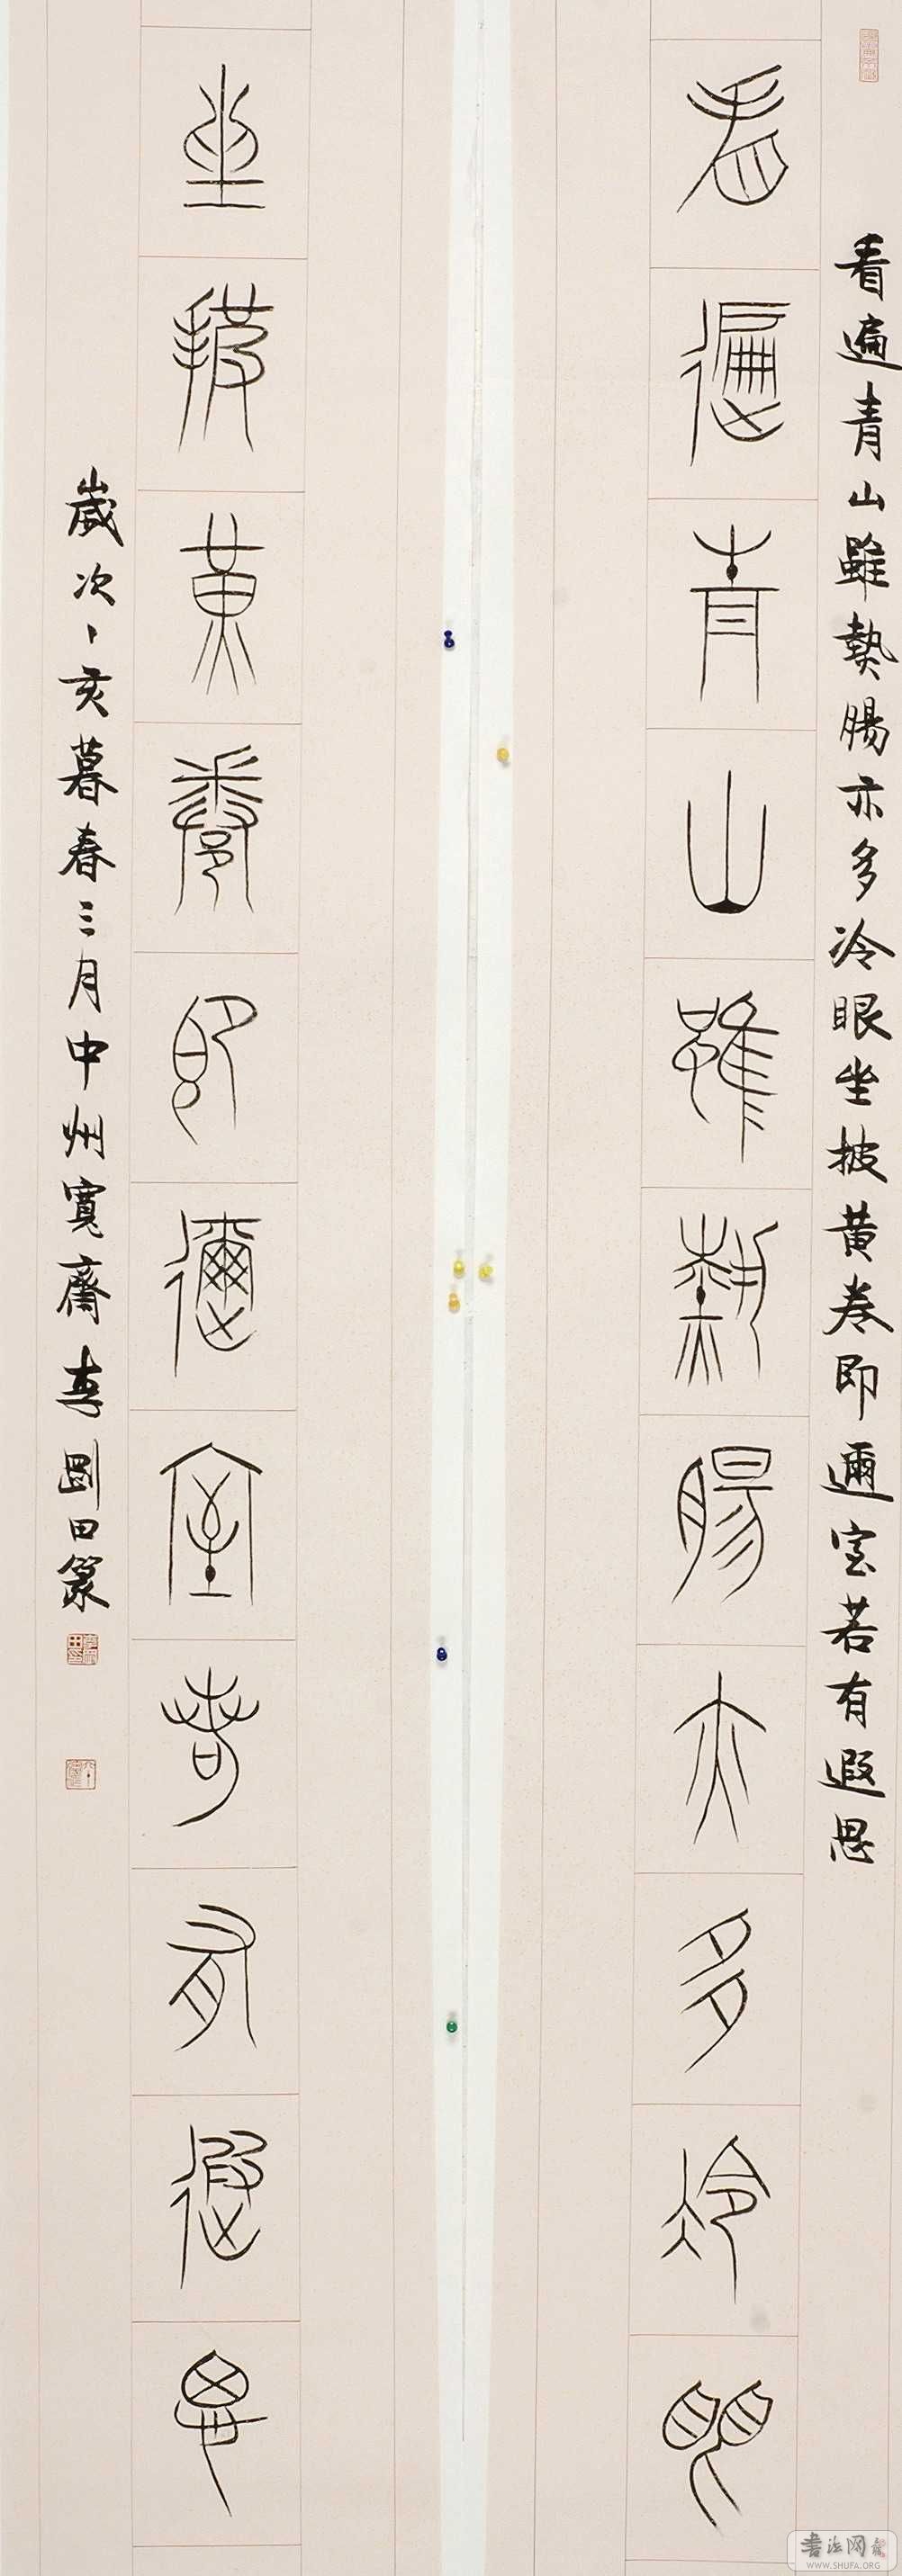 看遍青山雖熱腸亦多冷眼坐披黃卷即邇室若有遐思
看遍青山雖熱腸亦多冷眼
坐披黃卷即邇室若有遐思
歲次丶亥暮春三月中州寬齋李剛田篆
書法网
WWW.SHUFA.ORG